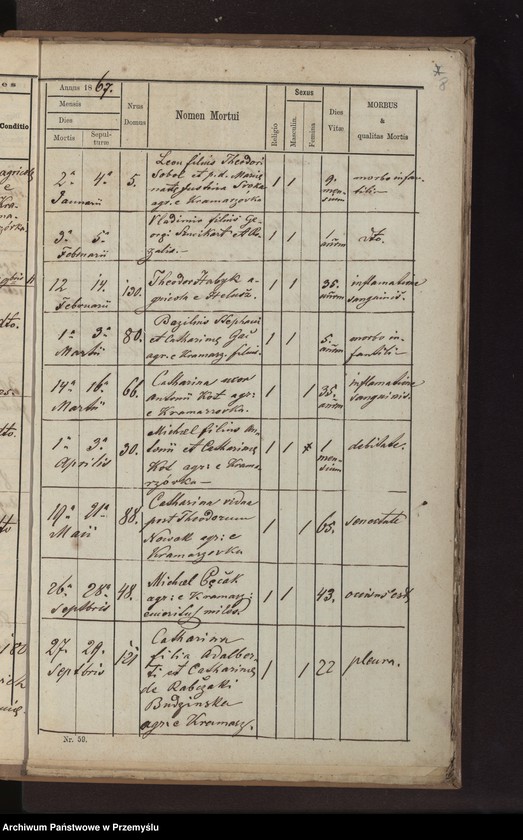 os
Conditio
Annus 1867.
Mensis
Dies
Mortis Sepulturæ
Nrus Domus
Nomen Mortui
Religio
Sexus
Masculin.
Femina
Dies Vitæ
MORBUS
&
qualitas Mortis
2ª 4ª
Januarii
5.
Leon filius Theodori
Sobol et p.d. Mariæ
natæ Justina Sroka
agr: e Kramarzovka
1 1
9.
mensium
morbo infan
tili
3ª 5ª
Februarii
Vladimir filius Ge-
orgi
1 1
1
annm
dto.
12 14.
Februarii
130.
Theodor Habyk a-
gricola e Helusz.
1 1
35.
annm
inflamatione
sanguinis.
1ª 3ª
Martii
80.
Bazilius Stephani
et Catharinæ Gaś
agr: e Kramarz. filius.
1 1
5.
annm
morbo in-
fantili
14ª 16ª
Martii
66.
Catharina uxor
Antonii Kot agr:
e Kramarzovka.
1 1
35.
annm
inflamatione
sanguinis.
1ª 3ª
Aprilis
30.
Michael filius An-
tonii et Catharinæ
Kot agr: e Krama-
rzóvka
1 1
1
mensium
debilitate.
19ª 21ª
Maii
88.
Catharina vidua
post Theodorum
Nowak agr: e
Kramarzovka
1 1
65.
senectute
26ª 28ª
Septbris
48.
Michael Pęcak
agr: e Kramarz:
emeritus miles.
1 1
43.
occisus est.
27. 29.
Septbris
121
Catharina
filia Adalber-
ti et Catharinæ
de Rabczaki
Budzinska
agr: e Kramarz.
1 1
22
pleura.
Nr. 50.
Archiwum Państwowe w Przemyślu